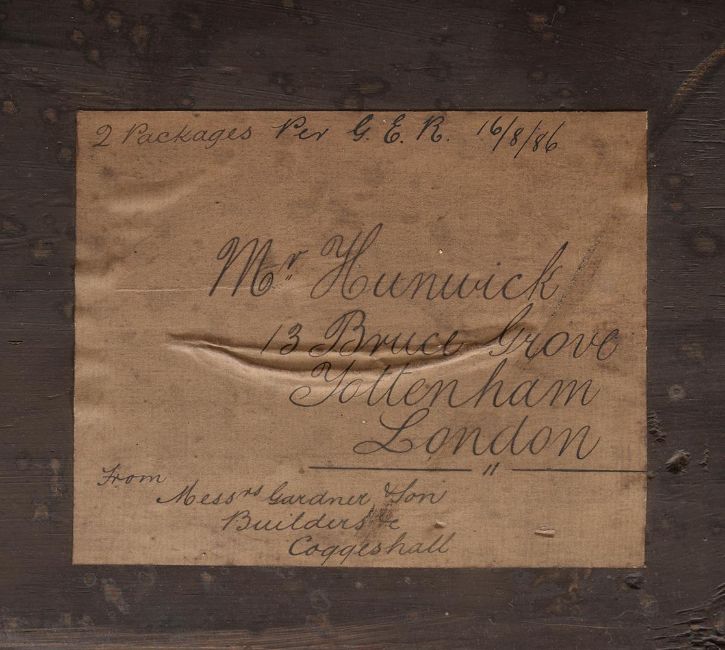 2 Packages Per G. E. R. 16/8/86
Mr Hunwick
13 Bruce Grove
Tottenham
London
From
Messrs Gardner & Son
Builders &c
Coggeshall